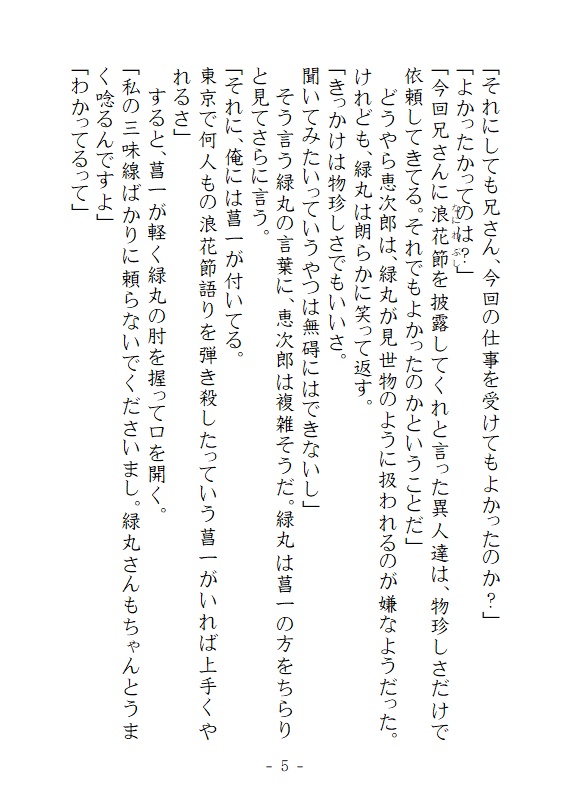 「それにしても兄さん、今回の仕事を受けてもよかったのか？」
「よかったかってのは？」
「今回兄さんに浪花節を披露してくれと言った異人達は、物珍しさだけで
なにわぶし
依頼してきてる。それでもよかったのかということだ」
　どうやら恵次郎は、緑丸が見世物のように扱われるのが嫌なようだった。
けれども、緑丸は朗らかに笑って返す。
「きっかけは物珍しさでもいいさ。
聞いてみたいっていうやつは無碍にはできないし」
　そう言う緑丸の言葉に、恵次郎は複雑そうだ。緑丸は菖一の方をちらり
と見てさらに言う。
「それに、俺には菖一が付いてる。
東京で何人もの浪花節語りを弾き殺したっていう菖一がいれば上手くや
れるさ」
　すると、菖一が軽く緑丸の肘を握って口を開く。
「私の三味線ばかりに頼らないでくださいまし。緑丸さんもちゃんとうま
く唸るんですよ」
「わかってるって」
- 5 -